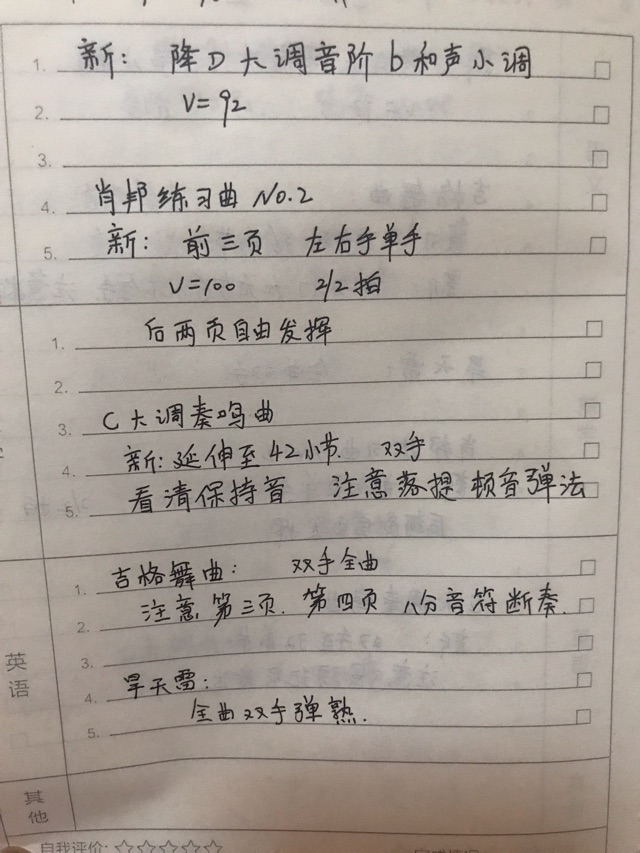 1. 新： 降D大调音阶 b和声小调
2. V=92
3.
4. 肖邦练习曲 No.2
5. 新： 前三页 左右手单手
V=100 2/2拍
1. 后两页自由发挥
2.
3. C大调奏鸣曲
4. 新：延伸至42小节. 双手
5. 看清保持音 注意落提 顿音弹法
1. 吉格舞曲： 双手全曲
2. 注意第三页.第四页 八分音符断奏.
3.
英语
4. 旱天雷：
5. 全曲双手弹熟.
其他
自我评价：☆☆☆☆☆